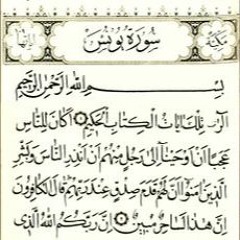 مكية
سورة يونس
آياتها
بسم الله الرحمن الرحيم
الر تلك آيات الكتاب الحكيم أكان للناس
عجبا أن أوحينا إلى رجل منهم أن أنذر الناس وبشر
الذين آمنوا أن لهم قدم صدق عند ربهم قال الكافرون
إن هذا لساحر مبين إن ربكم الله الذي